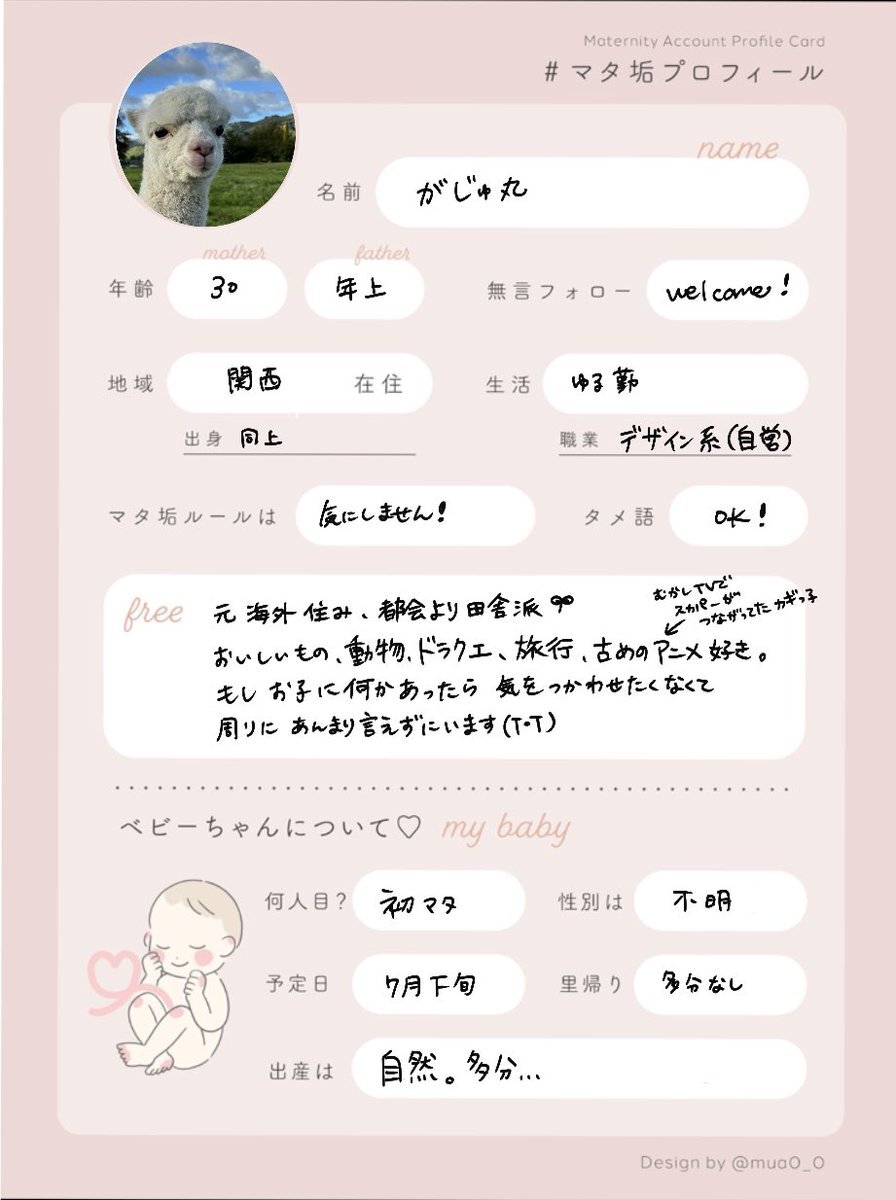 Maternity Account Profile Card
#マタ垢プロフィール
name
名前 がじゅ丸
mother father
年齢 30 年上 無言フォロー welcome!
地域 関西 在住 生活 ゆる勤
出身 同上 職業 デザイン系(自営)
マタ垢ルールは 気にしません! タメ語 OK!
free
むかしTVで
スカパーが
つながってたカギっ子
元 海外住み、都会より田舎派
おいしいもの、動物、ドラクエ、旅行、古めのアニメ好き。
もし お子に何かあったら 気をつかわせたくなくて
周りに あんまり言えずにいます(T・T)
ベビーちゃんについて♡ my baby
何人目? 初マタ 性別は 不明
予定日 7月下旬 里帰り 多分なし
出産は 自然。多分...
Design by @mua0_0